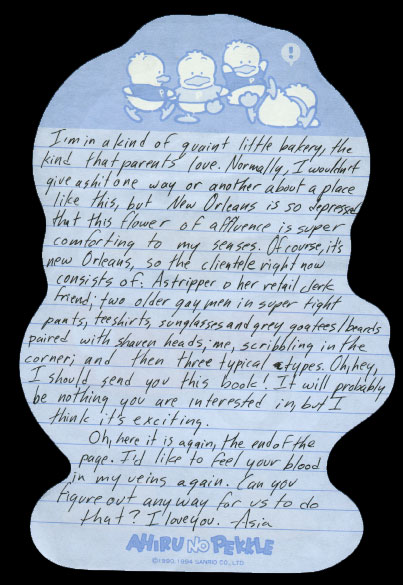 !
I'm in a kind of quaint little bakery, the
kind that parents love. Normally, I wouldn't
give a shit one way or another about a place
like this, but New Orleans is so depressed
that this flower of affluence is super
comforting to my senses. Of course, it's
new Orleans, so the clientele right now
consists of: A stripper & her retail clerk
friend; two older gay men in super tight
pants, teeshirts, sunglasses and grey goatees/beards
paired with shaven heads; me, scribbling in the
corner; and then three typical types. Oh, hey,
I should send you this book! It will probably
be nothing you are interested in, but I
think it's exciting.
Oh, here it is again, the end of the
page. I'd like to feel your blood
in my veins again. Can you
figure out any way for us to do
that? I love you. -Asia
AHIRU NO PEKKLE
©1990, 1994 SANRIO CO., LTD.